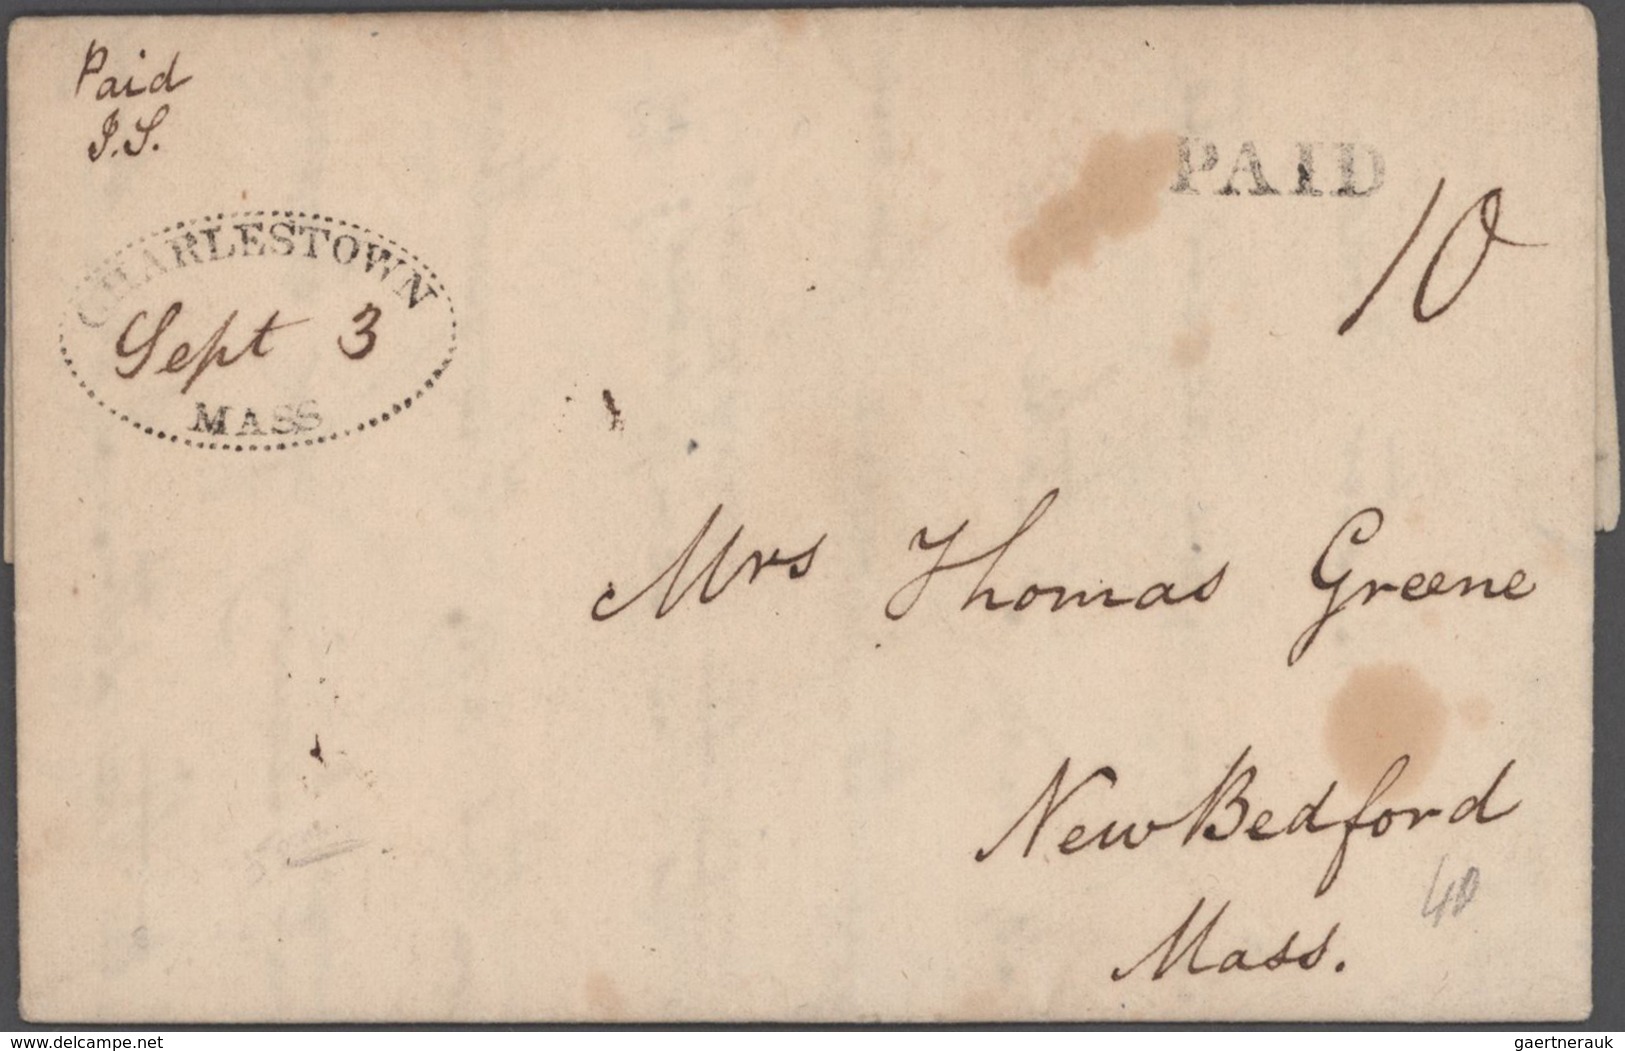 Paid
J.S.
CHARLESTOWN
Sept 3
MASS
PAID
10
Mrs Thomas Greene
New Bedford
Mass.
40
delcampe.net
gaertnerauk